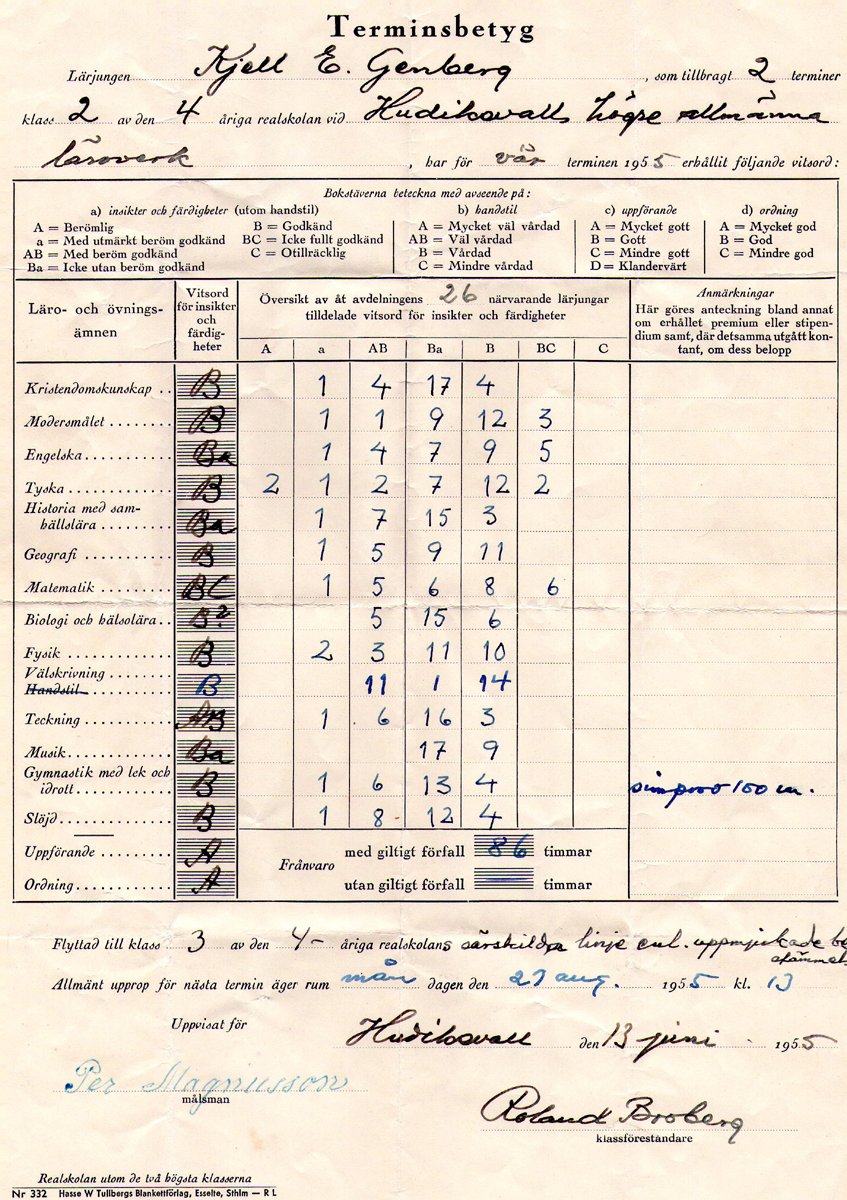 Terminsbetyg
Lärjungen Kjell E. Genberg, som tillbragt 2 terminer
klass 2 av den 4 åriga realskolan vid Hudiksvalls högre allmänna
läroverk, har för vår terminen 1955 erhållit följande vitsord:
Bokstäverna beteckna med avseende på:
a) insikter och färdigheter (utom handstil) b) handstil c) uppförande d) ordning
A = Berömlig B = Godkänd A = Mycket väl vårdad A = Mycket gott A = Mycket god
a = Med utmärkt beröm godkänd BC = Icke fullt godkänd AB = Väl vårdad B = Gott B = God
AB = Med beröm godkänd C = Otillräcklig B = Vårdad C = Mindre gott C = Mindre god
Ba = Icke utan beröm godkänd C = Mindre vårdad D = Klandervärt
Läro- och övnings-
ämnen
Vitsord
för insikter
och
färdig-
heter
Översikt av åt avdelningens 26 närvarande lärjungar
tilldelade vitsord för insikter och färdigheter
A a AB Ba B BC C
Anmärkningar
Här göres anteckning bland annat
om erhållet premium eller stipen-
dium samt, där detsamma utgått kon-
tant, om dess belopp
Kristendomskunskap .. B 1 4 17 4
Modersmålet ........ B 1 1 9 12 3
Engelska ........... Ba 1 4 7 9 5
Tyska .............. B 2 1 2 7 12 2
Historia med sam-
hällslära .......... Ba 1 7 15 3
Geografi ........... B 1 5 9 11
Matematik .......... BC 1 5 6 8 6
Biologi och hälsolära .. B? 5 15 6
Fysik .............. B 2 3 11 10
Välskrivning ........
Handstil ........... B 11 1 14
Teckning ........... AB 1 6 16 3
Musik .............. Ba 17 9
Gymnastik med lek och
idrott .............. B 1 6 13 4 simprov 100 m.
Slöjd .............. B 1 8 12 4
Uppförande ......... A
Ordning ............ A
Frånvaro
med giltigt förfall 86 timmar
utan giltigt förfall timmar
Flyttad till klass 3 av den 4- åriga realskolans särskilda linje enl. uppmjukade be
stämmels
Allmänt upprop för nästa termin äger rum mån dagen den aug. 1955 kl. 13
Uppvisat för
Hudiksvall den 13 juni 1955
Per Magnusson
målsman
Roland Broberg
klassföreståndare
Realskolan utom de två högsta klasserna
Nr 332 Hasse W Tullbergs Blankettförlag, Esselte, Sthlm — R L